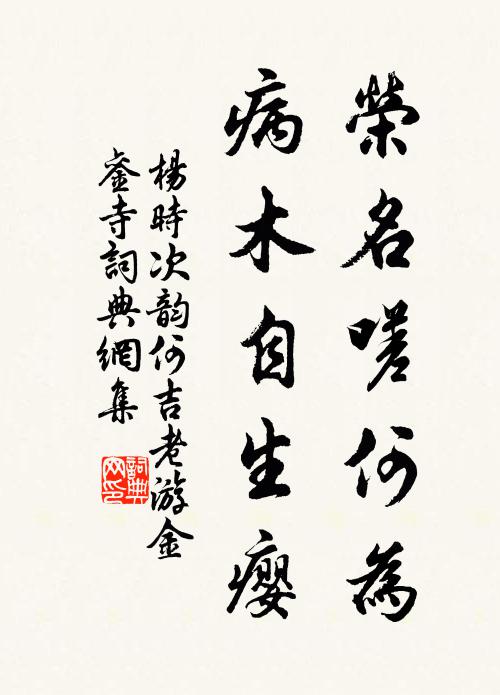 榮名嗟何為
病木自生癭
楊時次韵何吉老游金
銮寺詞典網集
詞典网印